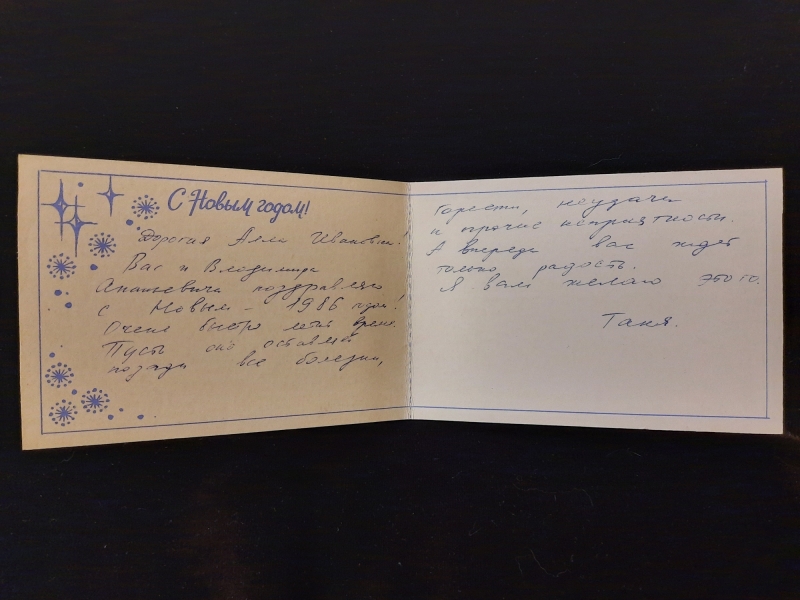 С Новым годом!
Дорогая Алла Ивановна!
Вас и Владимира
Ананьевича поздравляю
с Новым - 1986 годом!
Очень быстро летит время.
Пусть оно оставит
позади все болезни,
горести, неудачи
и прочие неприятности.
А впереди вас ждёт
только радость.
Я вам желаю этого.
Таня.